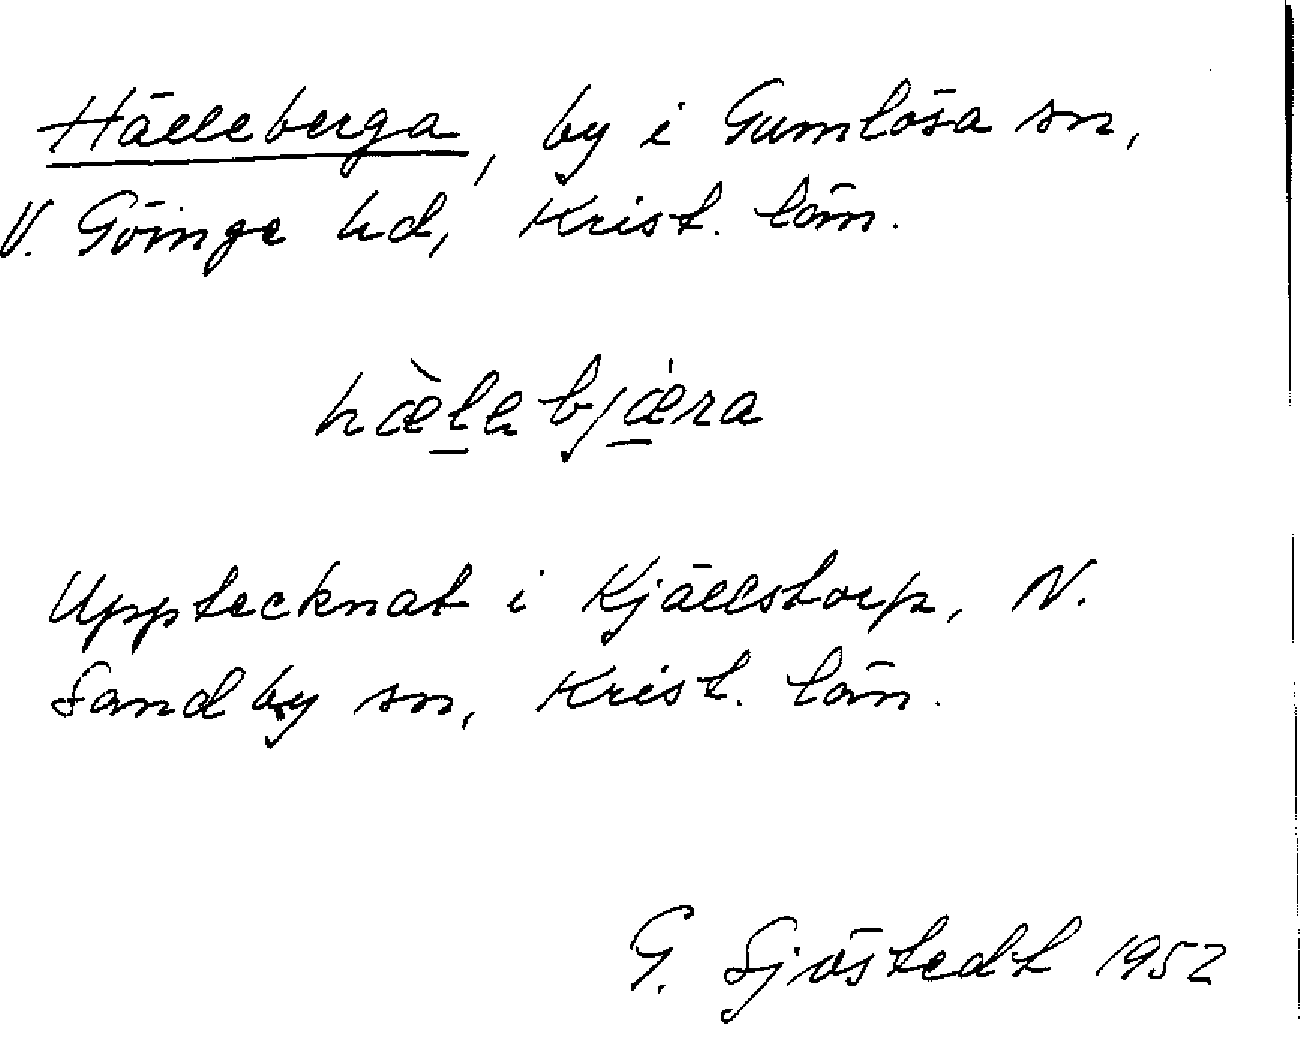 Hälleberga, by i Gumlösa sn,
V. Göinge hd, Krist. län.
hæ̀l̲ebjǽ̲ra
Upptecknat i Kjällstorp, N.
Sandby sn, Krist. län.
G. Sjöstedt 1952